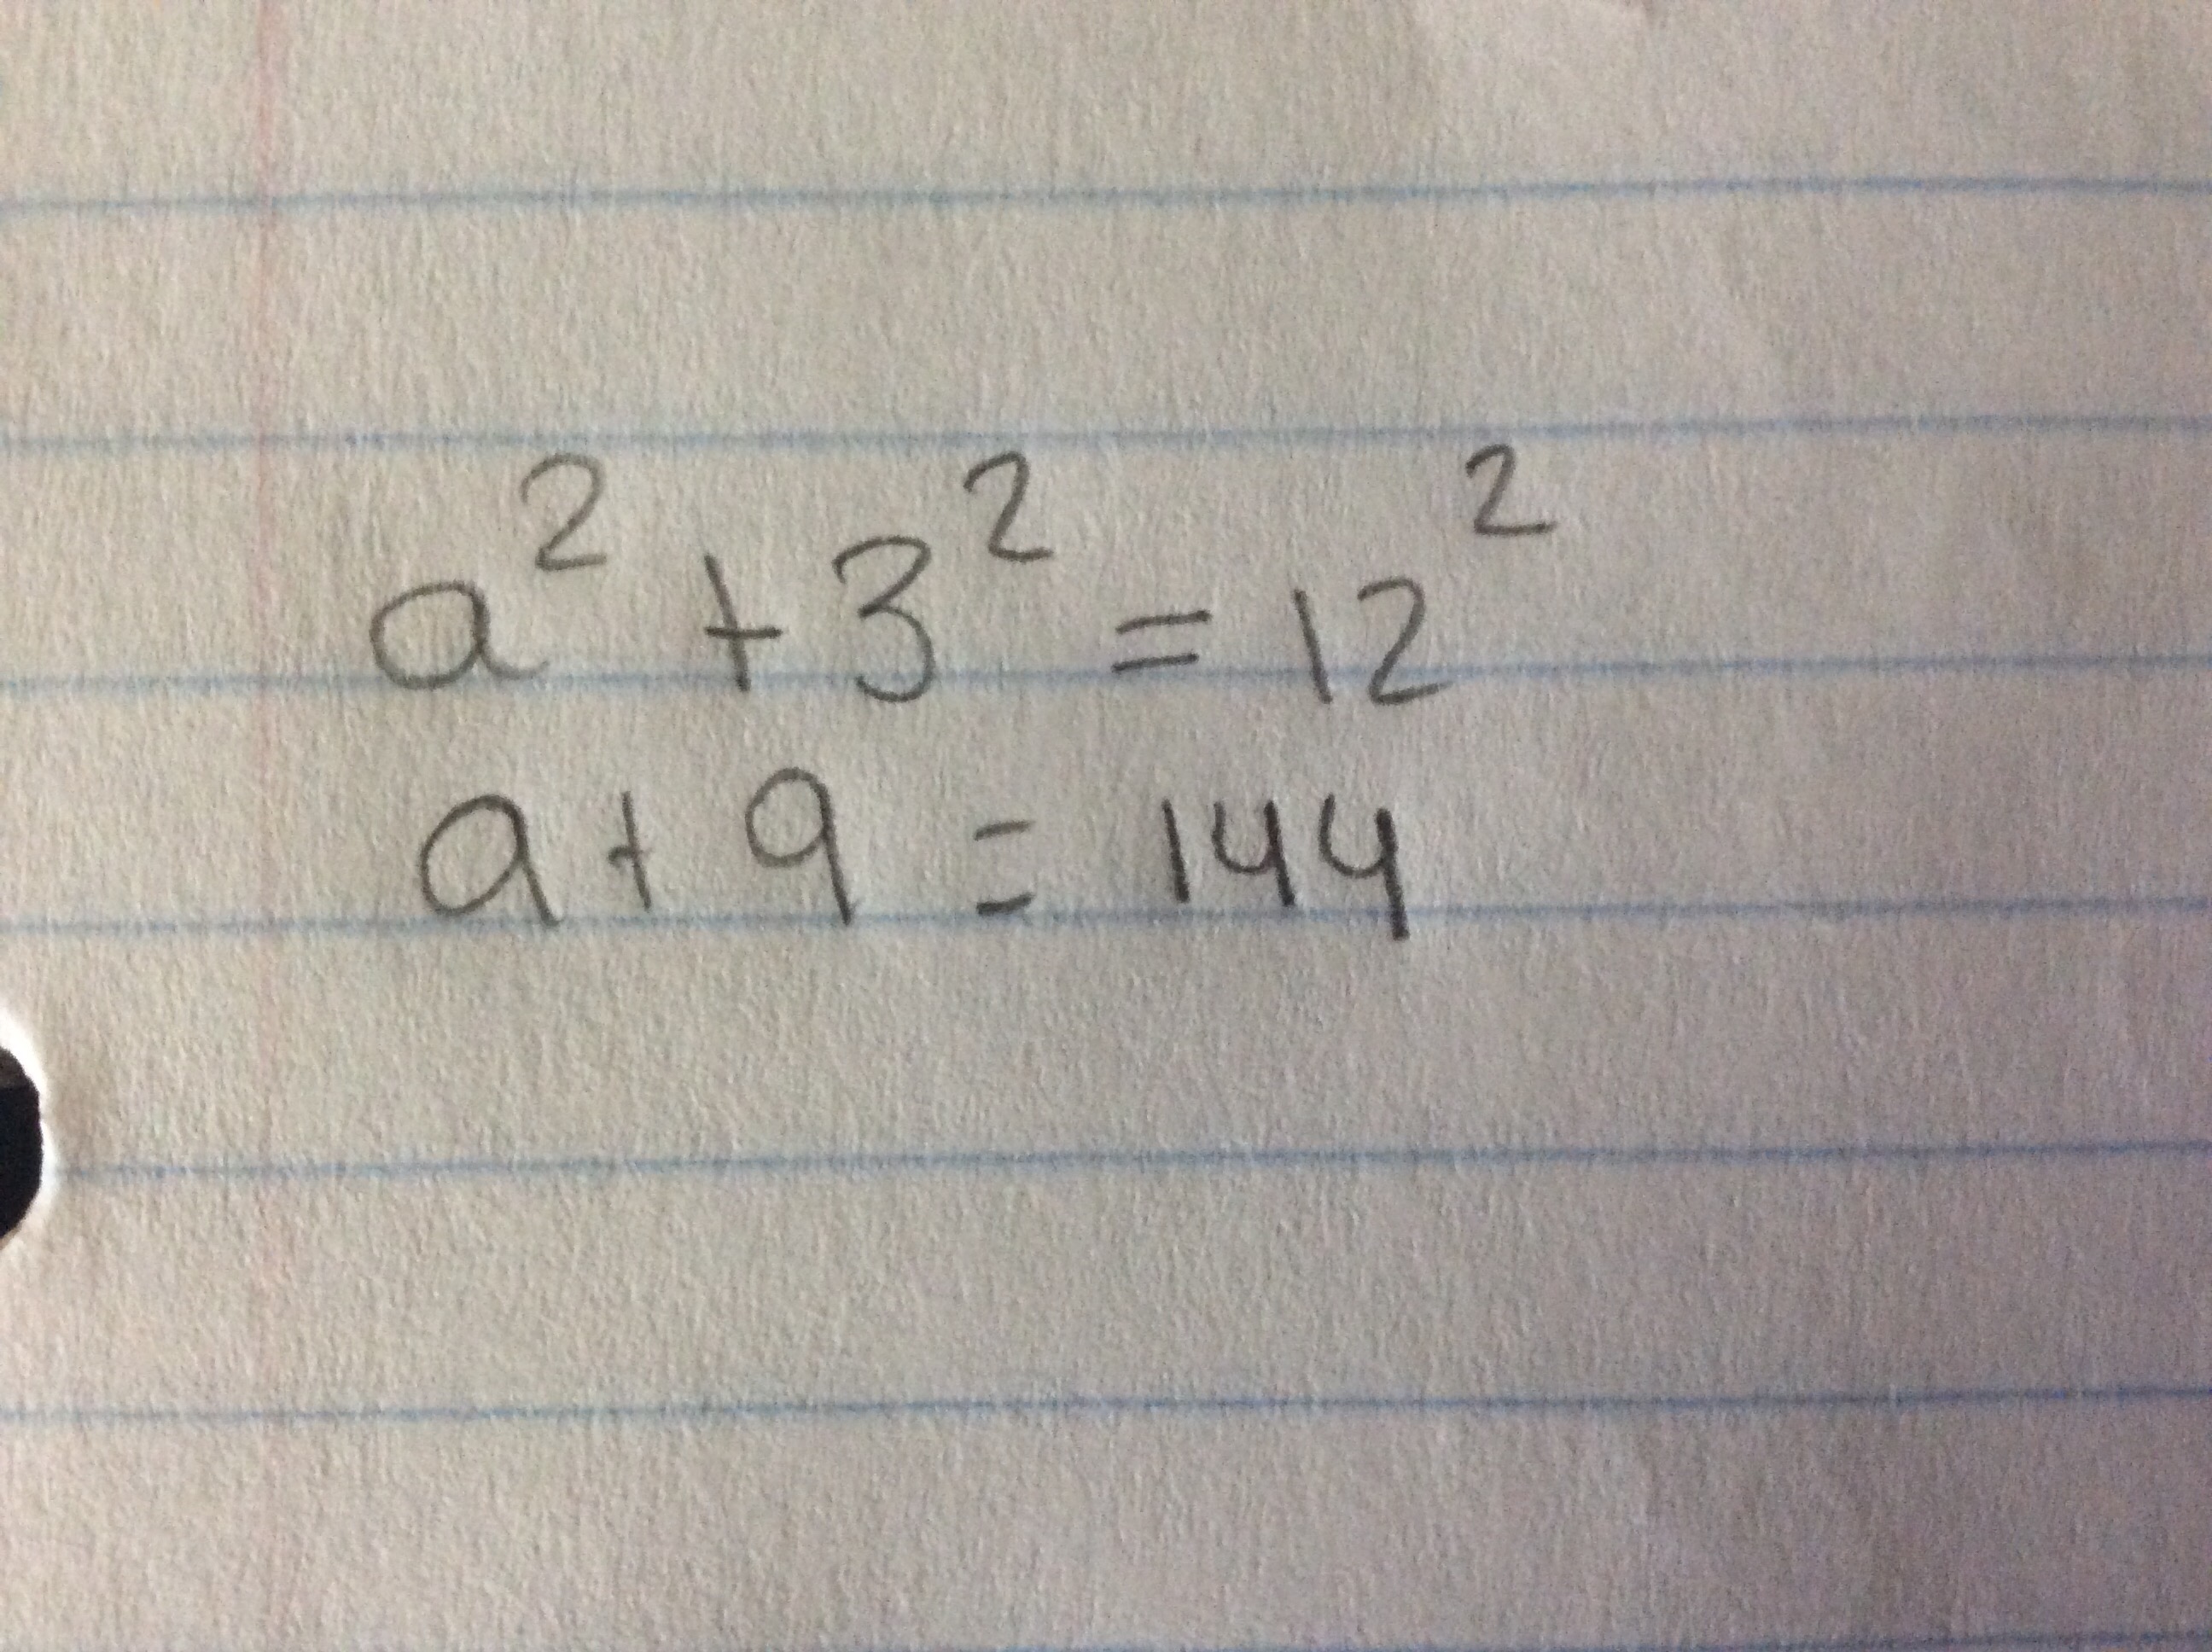 a² + 3² = 12²
a + 9 = 144